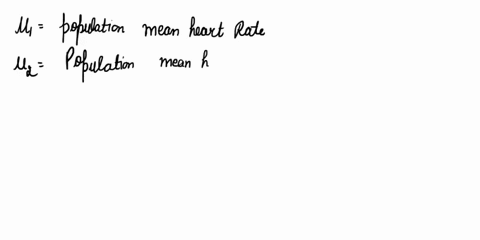 μ₁ = population mean heart Rate
μ₂ = Population mean h